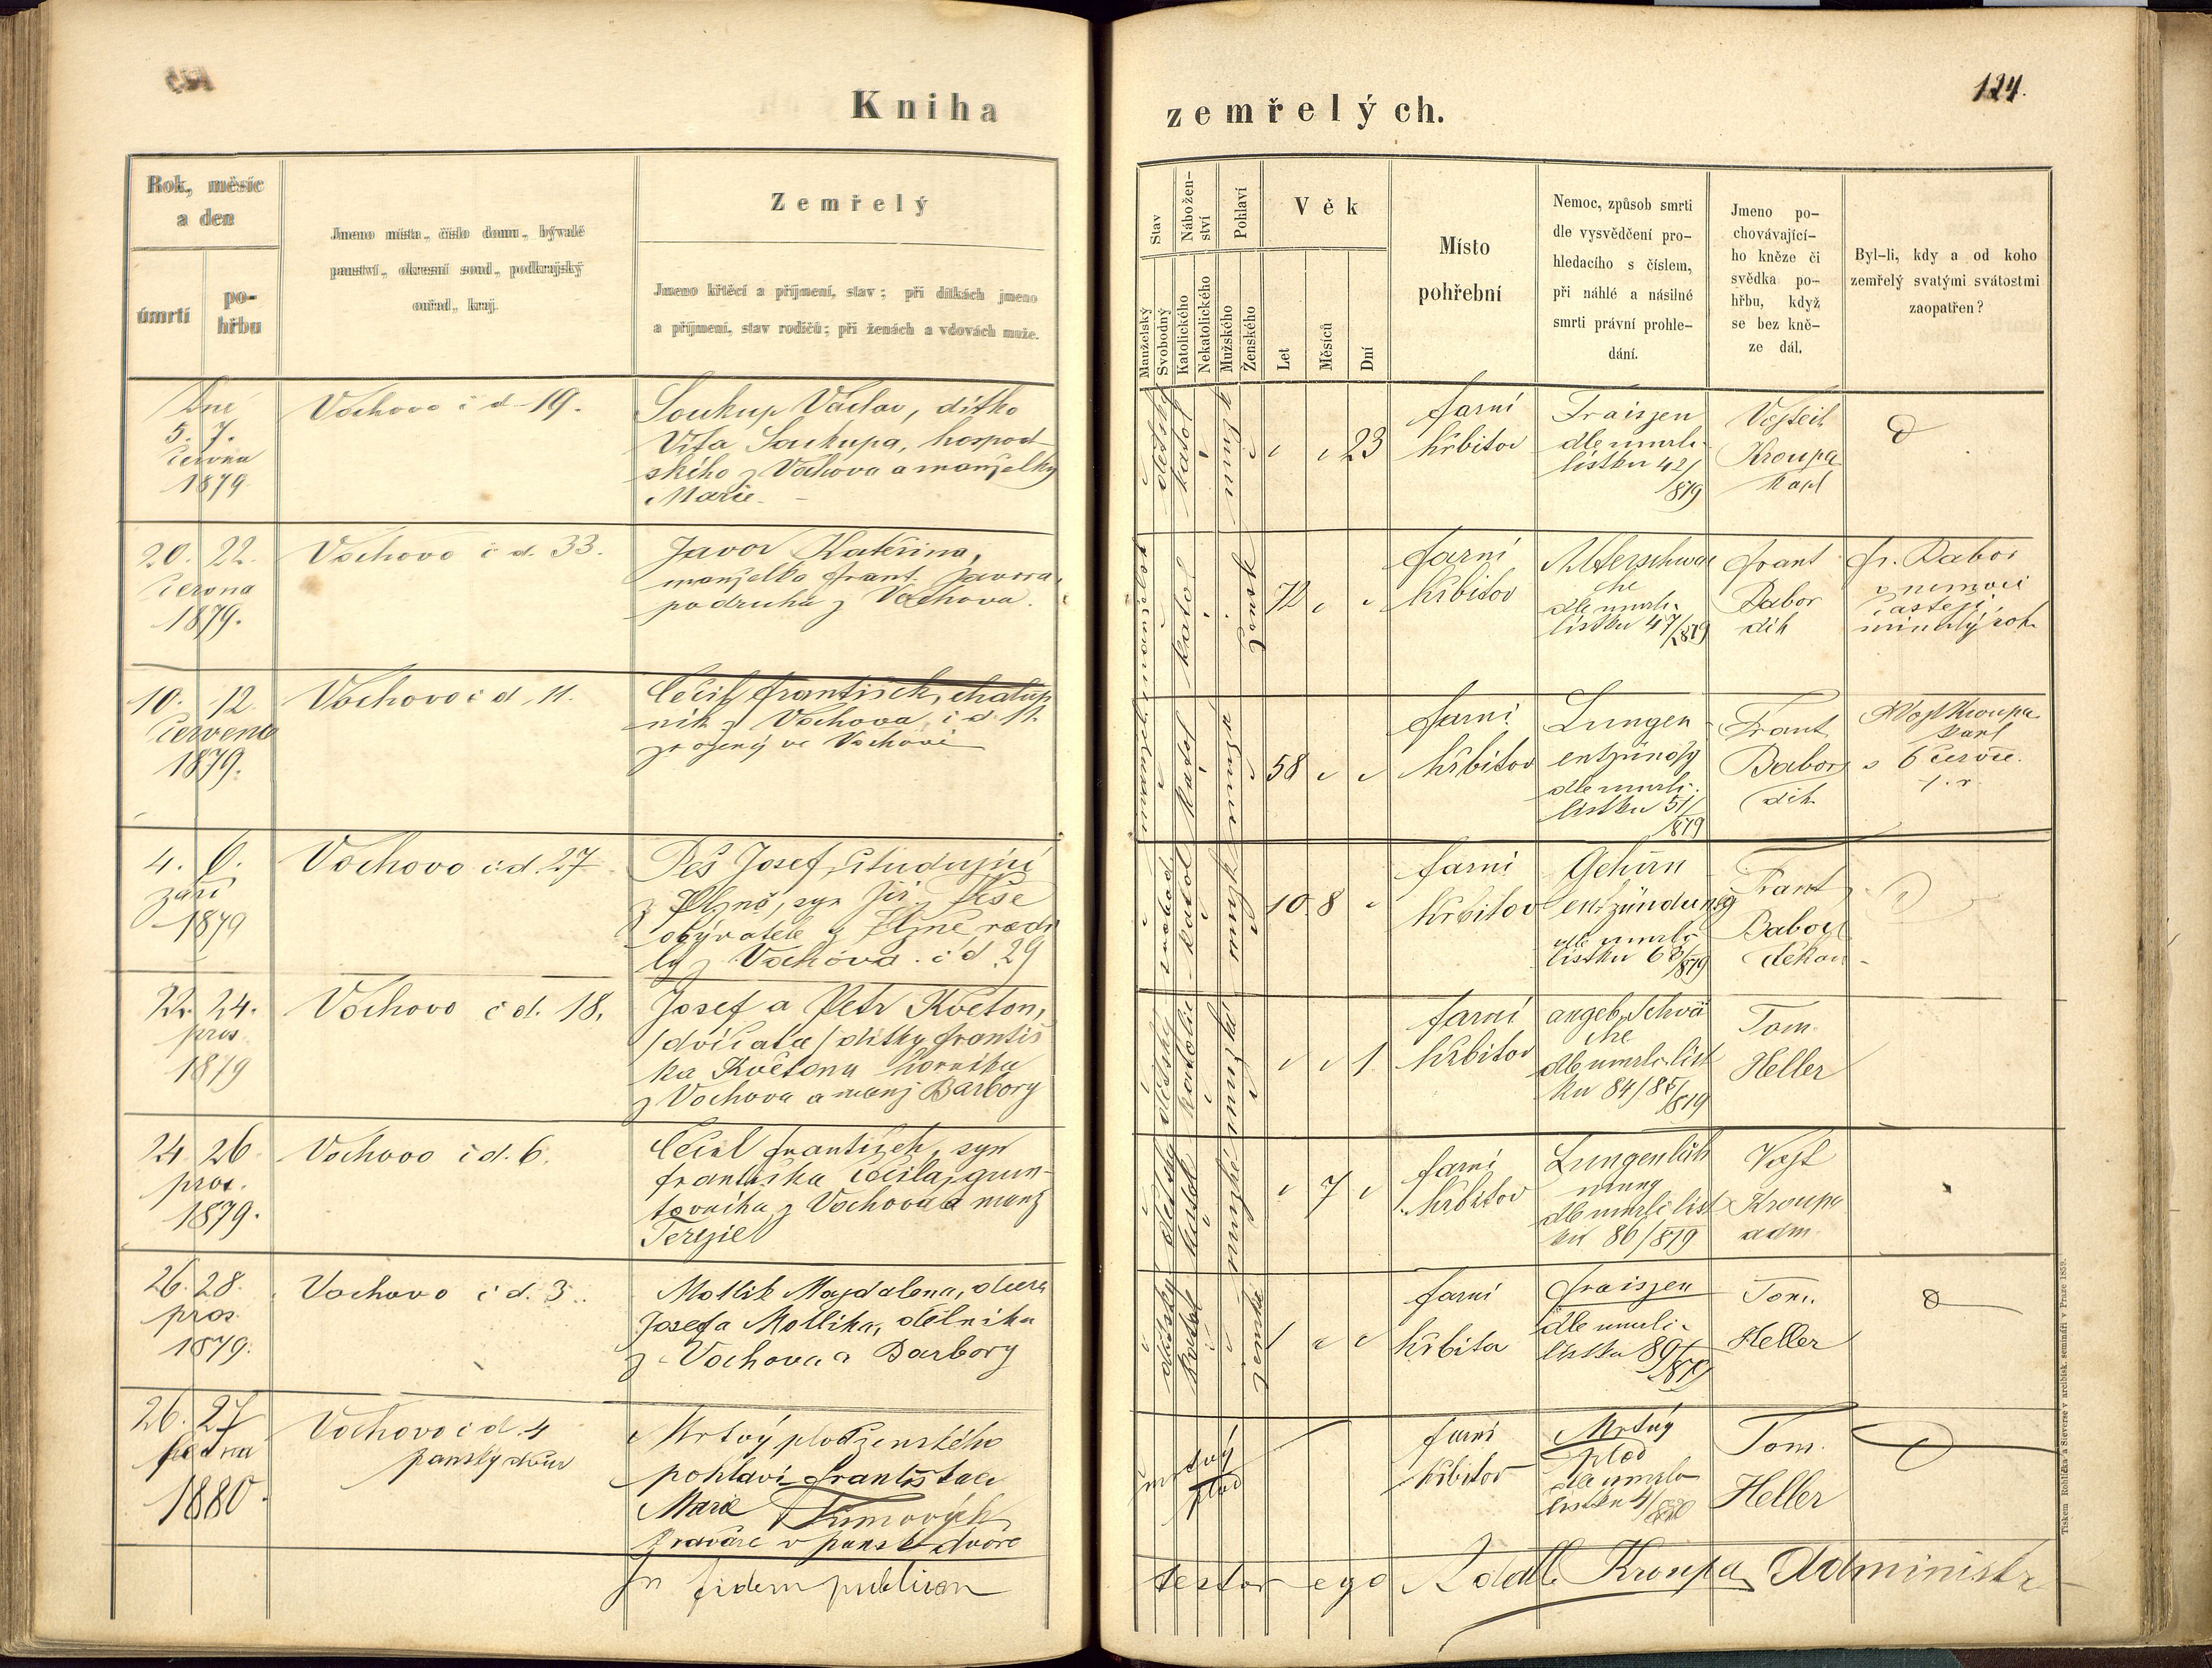 Kniha
zemřelých.
124.
Rok, měsíc
a den
úmrtí
po-
hřbu
Jmeno místa, číslo domu, bývalé
panství, okresní soud, podkrajský
ouřad, kraj.
Zemřelý
Jmeno křtěcí a příjmení, stav; při dítkách jmeno
a příjmení, stav rodičů; při ženách a vdovách muže.
Stav
Manželský
Svobodný
Nábožen-
ství
Katolického
Nekatolického
Pohlaví
Mužského
Ženského
Věk
Let
Měsíců
Dní
Místo
pohřební
Nemoc, způsob smrti
dle vysvědčení pro-
hledacího s číslem,
při náhlé a násilné
smrti právní prohle-
dání.
Jmeno po-
chovávající-
ho kněze či
svědka po-
hřbu, když
se bez kně-
ze dál.
Byl-li, kdy a od koho
zemřelý svatými svátostmi
zaopatřen?
Dne
5. 7.
června
1879
Vochovo č d 19.
Soukup Václav, dítko
Víta Soukupa, hospod
ského z Vochova a manželky
Marie.
dětský
katol
muž
23
farní
hřbitov
Fraiszen
dle umrlč.
lístku 42/
879
Vojtěch
Kroupa
kapl
20. 22.
června
1879.
Vochovo č d. 33.
Javor Kateřina,
manželka Frant. Javora,
podruha z Vochova.
katol
žensk
72
farní
hřbitov
Altersschwä
che
dle umrlč.
lístku 47/879
Frant
Babor
děk
Fr. Babor
v nemoci
častěji
minulý rok
10. 12.
července
1879.
Vochovo č d. 11.
Cečil František, chalup
ník z Vochova č d 11.
zrozený ve Vochově
katol
58
farní
hřbitov
Lungen
entzündg
dle umrlč.
lístku 51/
879
Frant
Babor
děk.
Vojt Kroupa
kapl
6 červce.
t. r.
4. 6.
září
1879
Vochovo č d. 27
Peš Josef, studující
z Plzně, syn Jiř. Peše
obývatele z Plzně rodi
lý z Vochova č d 29
svobod
katol
mužsk
10 8
farní
hřbitov
Gehirn
entzündung
dle umrlč
lístku 68/879
Frant
Babor
děkan
22. 24.
pros
1879
Vochovo č d. 18.
Josef a Petr Květon,
/dvíčata/ dítky Františ
ka Květona horníka
z Vochova a manž Barbory
dětský
katolic
mužské
1
farní
hřbitov
angeb. Schwä
che
dle umrlč. líst
ku 84/85/
879
Tom.
Heller
24. 26
pros.
1879.
Vochovo č d. 6.
Cečil František, syn
Františka Cečila, grun-
tovníka z Vochova a manž
Terezie
dětský
katol
mužské
7
farní
hřbitov
Lungenläh
mung
dle umrlč líst
ku 86/879
Vojt
Kroupa
adm.
26. 28.
pros.
1879.
Vochovo č d. 3.
Motlík Majdalena, dcera
Josefa Motlíka, dělníka
z Vochova a Barbory
dětský
katol
ženské
1
farní
hřbitov
Fraiszen
dle umrlč.
lístku 89/
879
Tom.
Heller
26. 27
ledna
1880.
Vochovo č d. 4
panský dvůr
Mrtvý plod ženského
pohlaví Františka a
Marie Tumových
v panské dvoře
mrtvý
plod
farní
hřbitov
Mrtvý
plod
dle umrlč
lístku 4/880
Tom.
Heller
In fidem publicam
testor ego Adalb Kroupa, Administr
Tiskem Rohlíčka a Sieverse v arcibisk. semináři v Praze 1859.